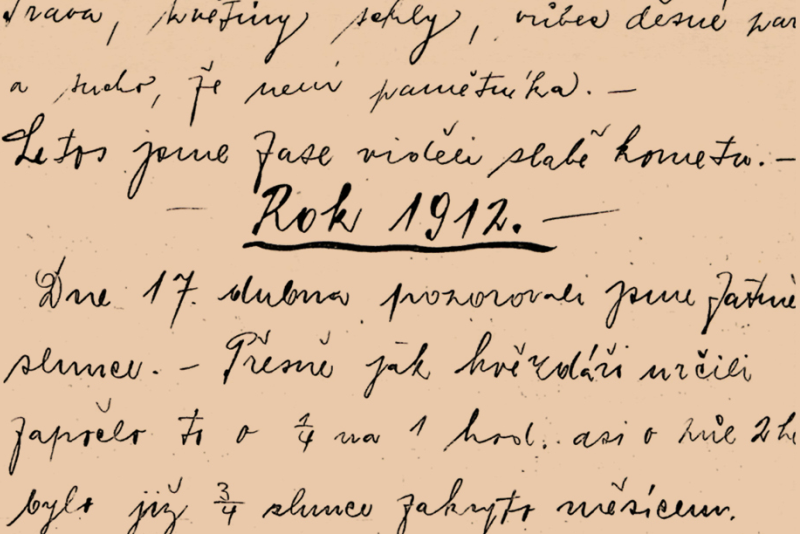 Tráva, květiny schly, vůbec děsné par
a sucho, že není pamětníka. —
Letos jsme zase viděli slabě kometu. —
— Rok 1912. —
Dne 17. dubna pozorovali jsme zatmě
slunce. — Přesně jak hvězdáři určili
započelo to o 1/4 na 1 hod. asi o půl 2 h
bylo již 3/4 slunce zakryto měsícem.